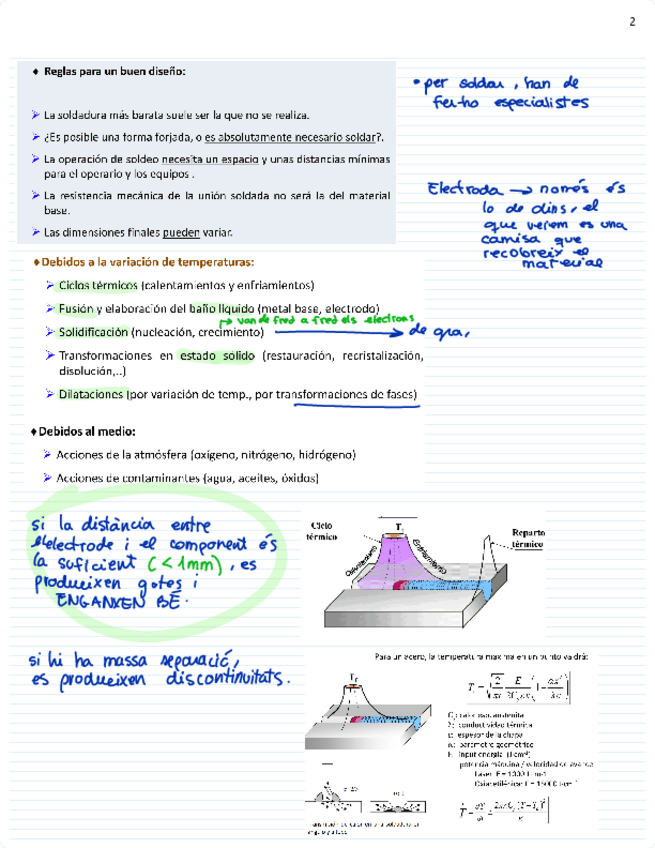 2
♦ Reglas para un buen diseño:
➤ La soldadura más barata suele ser la que no se realiza.
➤ ¿Es posible una forma forjada, o es absolutamente necesario soldar?.
➤ La operación de soldeo necesita un espacio y unas distancias mínimas
para el operario y los equipos .
➤ La resistencia mecánica de la unión soldada no será la del material
base.
➤ Las dimensiones finales pueden variar.
• per soldar, han de
fer-ho especialistes
Electroda → només és
lo de dins, el
que veiem es una
camisa que
recobreix el
material
♦Debidos a la variación de temperaturas:
➤ Ciclos térmicos (calentamientos y enfriamientos)
➤ Fusión y elaboración del baño líquido (metal base, electrodo)
van de fred a fred els electrons
➤ Solidificación (nucleación, crecimiento)
de gra,
➤ Transformaciones en estado sólido (restauración, recristalización,
disolución,..)
➤ Dilataciones (por variación de temp., por transformaciones de fases)
♦Debidos al medio:
➤ Acciones de la atmósfera (oxígeno, nitrógeno, hidrógeno)
➤ Acciones de contaminantes (agua, aceites, óxidos)
si la distància entre
elelectrode i el component és
la suficient (<1mm), es
produeixen gotes i
ENGANXEN BÉ.
Ciclo
térmico
Calentamiento
Enfriamiento
Reparto
térmico
si hi ha massa separació,
es produeixen discontinuitats.
Para un acero, la temperatura maxima en un punto valdrá:
λ: conductividad térmica
e: espesor de la chapa
parámetro geométrico
potencia máquina / velocidad de avance